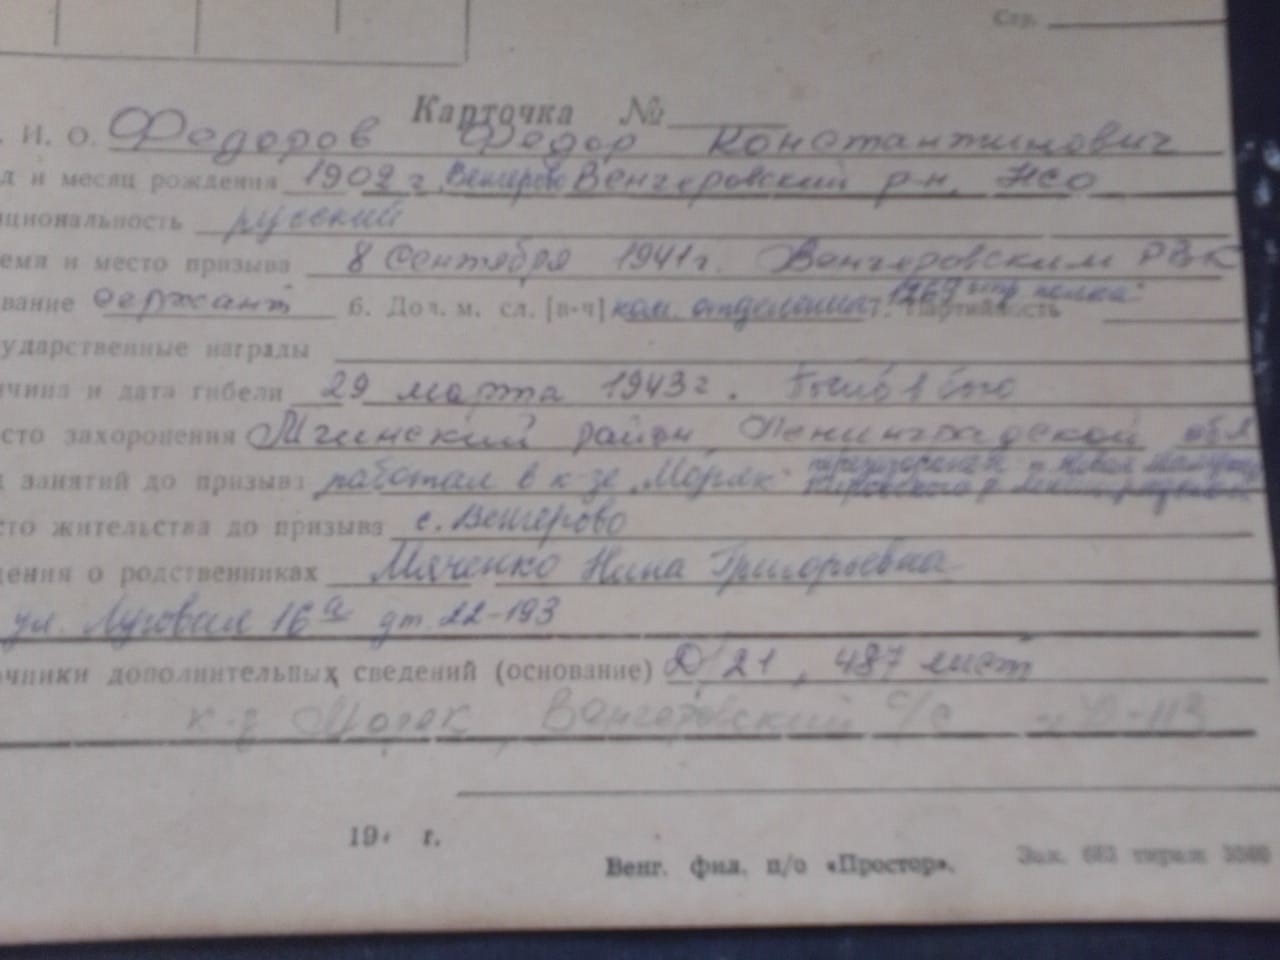 Стр.
Карточка №
И. О. Федоров Федор Константинович
д и месяц рождения 1902 г. Венгерово Венгеровский р-н, НСО
циональность русский
емя и место призыва 8 сентября 1941 г. Венгеровским РВК
вание сержант 6. Дол. м. сл. [в-ч] ком. отделения 1269 стр. полка 7. Партийность
ударственные награды
ичина и дата гибели 29 марта 1943 г. Погиб в бою
сто захоронения Мгинский район Ленинградской обл
перезахоронен
д занятий до призыва работал в к-зе "Моряк" Кировского р
сто жительства до призыва с. Венгерово
дения о родственниках Мяченко Нина Григорьевна
ул. Луговая 16а дт. 22-193
очники дополнительных сведений (основание) Д/21, 487 лист
к-з Моряк, Венгеровский с/с
19 г.
Венг. фил. п/о «Простор». Зак. 663 тираж